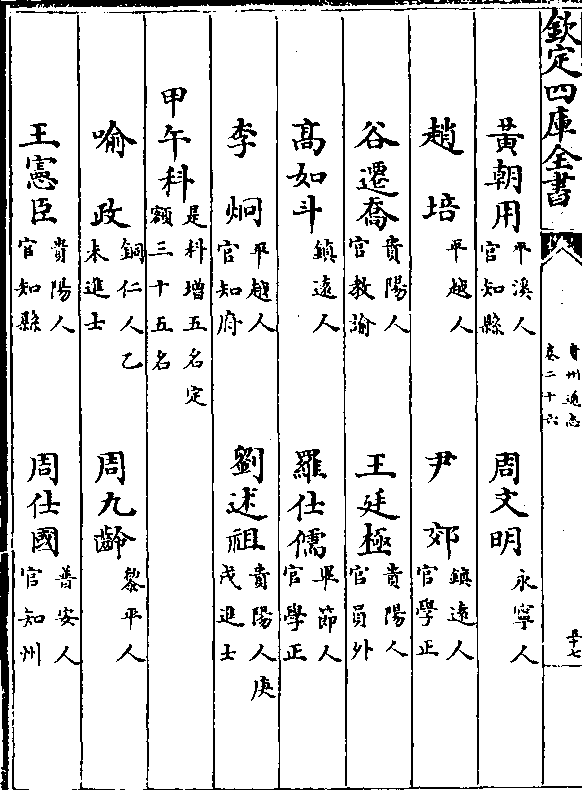 欽定四庫全書
貴州通志
卷二十六
黃朝用 平溪人 官知縣 周文明 永寧人
趙培 平越人 尹郊 鎮遠人 官學正
谷遷喬 貴陽人 官教諭 王廷極 貴陽人 官員外
高如斗 鎮遠人 羅仕儒 畢節人 官學正
李炯 平越人 官知府 劉述祖 貴陽人庚 戌進士
甲午科 是科增五名定 額三十五名
喻政 銅仁人乙 未進士 周九齡 黎平人
王憲臣 貴陽人 官知縣 周仕國 普安人 官知州